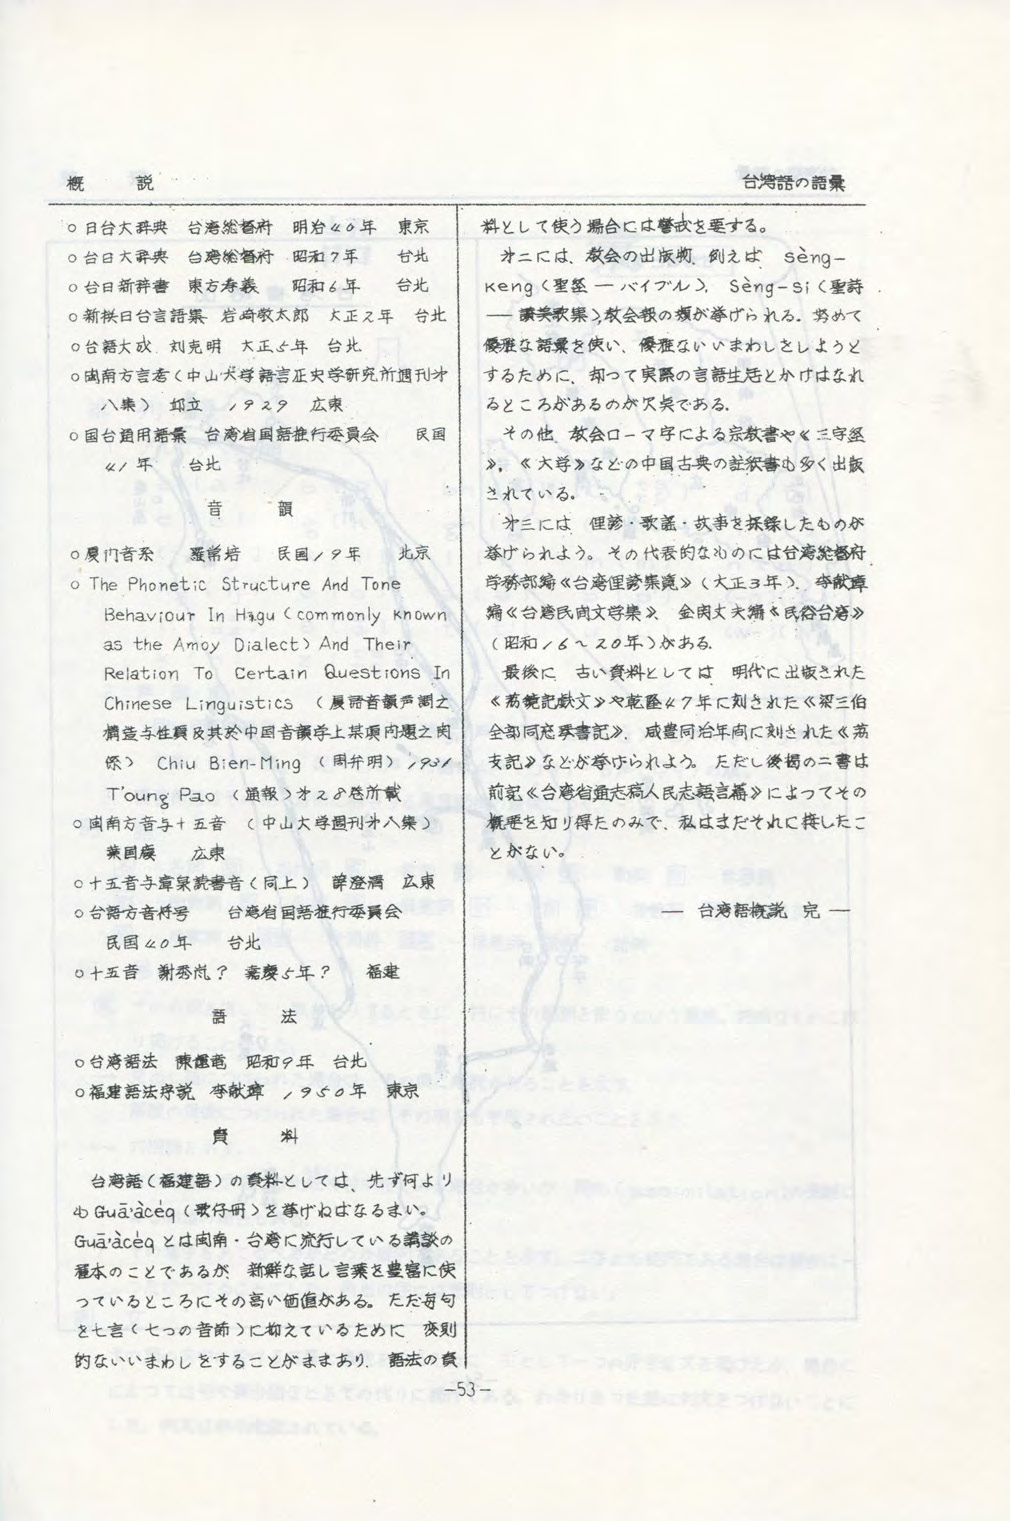 概　　説
台湾語の語彙
○日台大辞典　台湾総督府　明治40年　東京
○台日大辞典　台湾総督府　昭和7年　台北
○台日新辞書　東方孝義　昭和6年　台北
○新撰日台言語集　岩崎敬太郎　大正2年　台北
○台語大成　刘克明　大正5年　台北
○闽南方言考（中山大学語言历史学研究所週刊才
八集）　邱立　1929　広東
○国台通用語彙　台湾省国語推行委員会　民国
41年　台北
音　　韻
○厦门音系　羅常培　民国19年　北京
○The Phonetic Structure And Tone
Behaviour In Hagu (commonly Known
as the Amoy Dialect) And Their
Relation To Certain Questions In
Chinese Linguistics （厦語音韻声調之
構造与性質及其於中国音韻学上某項问題之関
係）　Chiu Bien-Ming （周弁明）1931
T'oung Pao （通報）才28巻所載
○闽南方音与十五音　（中山大学週刊才八集）
葉国慶　広東
○十五音与漳泉読書音（同上）　薛澄清　広東
○台語方音符号　台湾省国語推行委員会
民国40年　台北
○十五音　謝秀岚？　嘉慶5年？　福建
語　　法
○台湾語法　陳輝龍　昭和9年　台北
○福建語法序説　李献璋　1950年　東京
資　　料
台湾語（福建語）の資料としては、先ず何より
も Guā'àcéq（歌仔冊）を挙げねばなるまい。
Guā'àcéq とは闽南・台湾に流行している講談の
種本のことであるが、新鮮な話し言葉を豊富に使
っているところにその高い価値がある。ただ毎句
を七言（七つの音節）に抑えているために、変則
的ないいまわしをすることがままあり、語法の資
料として使う場合には警戒を要する。
才二には、教会の出版物、例えば、Sèng-
Keng（聖経 ― バイブル）、Sèng-si（聖詩
― 讃美歌集）、教会報の類が挙げられる。努めて
優雅な語彙を使い、優雅ないいまわしをしようと
するために、却って実際の言語生活とかけはなれ
るところがあるのが欠点である。
その他、教会ローマ字による宗教書や《三字経
》、《大学》などの中国古典の註釈書も多く出版
されている。
才三には　俚諺・歌謡・故事を採録したものが
挙げられよう。その代表的なものには台湾総督府
学務部編《台湾俚諺集覧》（大正3年）、李献璋
編《台湾民间文学集》、金関丈夫編《民俗台湾》
（昭和16～20年）がある。
最後に、古い資料としては、明代に出版された
《荔鏡記戯文》や乾隆47年に刻された《梁三伯
全部同窓琴書記》、咸豊同治年间に刻された《荔
支記》などが挙げられよう。ただし後掲の二書は
前記《台湾省通志稿人民志語言篇》によってその
概要を知り得たのみで、私はまだそれに接したこ
とがない。
― 台湾語概説　完 ―
-53-